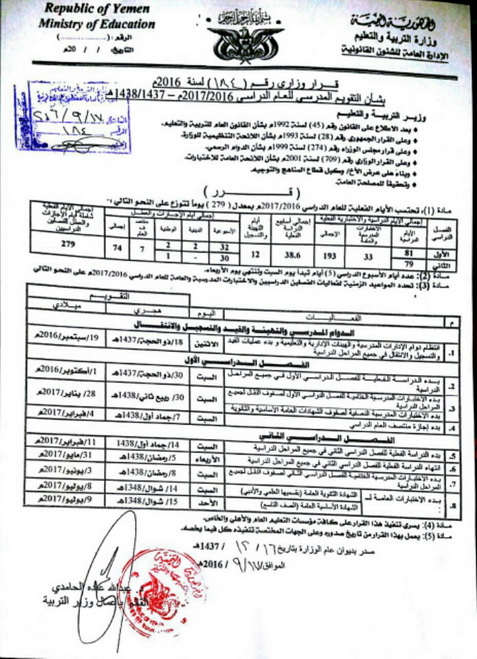 Republic of Yemen
Ministry of Education
الجمهورية اليمنية
وزارة التربية والتعليم
الإدارة العامة للشئون القانونية
الرقم ( )
التاريخ / / 20م
قرار وزاري رقم (١٨٤) لسنة 2016م
بشأن التقويم المدرسي للعام الدراسي 2017/2016م – 1438/1437هـ
وزير التربية والتعليم
بعد الاطلاع على القانون رقم (45) لسنة 1992م بشأن القانون العام للتربية والتعليم.
وعلى القرار الجمهوري رقم (28) لسنة 1993م بشأن اللائحة التنظيمية للوزارة.
وعلى قرار مجلس الوزراء رقم (274) لسنة 1999م بشأن الدوام الرسمي.
وعلى القرار الوزاري رقم (709) لسنة 2001م بشأن اللائحة العامة للاختبارات.
وبناء على عرض الأخ/ وكيل قطاع المناهج والتوجيه.
وتحقيقاً للمصلحة العامة.
( قرر )
مادة (1): تحتسب الأيام الفعلية للعام الدراسي 2017/2016م بمعدل (279) يوماً تتوزع على النحو التالي
الفصل الدراسي
إجمالي أيام الدراسية والاختبارية الفعلية
أيام الدراسة
الإجمالي
إجمالي أسابيع الدراسة الفعلية
أيام التهيئة والتسجيل
إجمالي أيام الإجازات والعطل
الأسبوعية
الدينية
الوطنية
إجمالي
الأول 81 33 193 38.6 12 32 2 2 7 74 279
الثاني 79 30 - 1
مادة (2): عدد أيام الأسبوع الدراسي (5) أيام تبدأ يوم السبت وتنتهي يوم الأربعاء.
مادة (3): تحدد المواعيد الزمنية لفعاليات الفصلين الدراسيين والاختبارات المدرسية والعامة للعام الدراسي 2017/2016م على النحو التالي
م
الفعاليات
اليوم
التقويم
هجري
ميلادي
الدوام المدرسي والتهيئة والقيد والتسجيل والانتقال
1. انتظام دوام الإدارات المدرسية والهيئات الإدارية والتعليمية و بدء عمليات القيد والتسجيل والانتقال في جميع المراحل الدراسية الاثنين 18/ذو الحجة/1437هـ 19/سبتمبر/2016م
الفصل الدراسي الأول
2. بدء الدراسة الفعلية للفصل الدراسي الأول في جميع المراحل الدراسية السبت 30/ذو الحجة/1437هـ 1/أكتوبر/2016م
3. بدء الاختبارات المدرسية الختامية للفصل الدراسي الأول لصفوف النقل لجميع المراحل الدراسية السبت 30/ ربيع ثاني/1438هـ 28/ يناير/2017م
بدء الاختبارات المدرسية النصفية لصفوف الشهادات العامة الأساسية والثانوية
4. بدء إجازة منتصف العام الدراسي السبت 7/جماد أول/1438هـ 4/فبراير/2017م
الفصل الدراسي الثاني
5. بدء الدراسة الفعلية للفصل الدراسي الثاني في جميع المراحل الدراسية السبت 14/جماد أول/1438هـ 11/فبراير/2017م
6. انتهاء الدراسة الفعلية للفصل الدراسي الثاني في جميع المراحل الدراسية الأربعاء 5/رمضان/1438هـ 31/مايو/2017م
7. بدء الاختبارات المدرسية الختامية للفصل الدراسي الثاني لصفوف النقل لجميع المراحل الدراسية السبت 8/رمضان/1438هـ 3/يونيو/2017م
8. بدء الاختبارات العامة لـ الشهادة الثانوية العامة (بقسميها العلمي والأدبي) السبت 14/ شوال/1348هـ 8/يوليو/2017م
الشهادة الأساسية العامة (الصف التاسع) الأحد 15/ شوال/1438هـ 9/يوليو/2017م
مادة (4): يسري تنفيذ هذا القرار على كافة مؤسسات التعليم العام والأهلي والخاص.
مادة (5): يعمل بهذا القرار من تاريخ صدوره وعلى الجهات المختصة تنفيذه كل فيما يخصه.
صدر بديوان عام الوزارة بتاريخ ١٦/ ١٢ /1437هـ
الموافق ١٧/ ٩ /2016م
عبدالله عبده الحامدي
القائم بأعمال وزير التربية